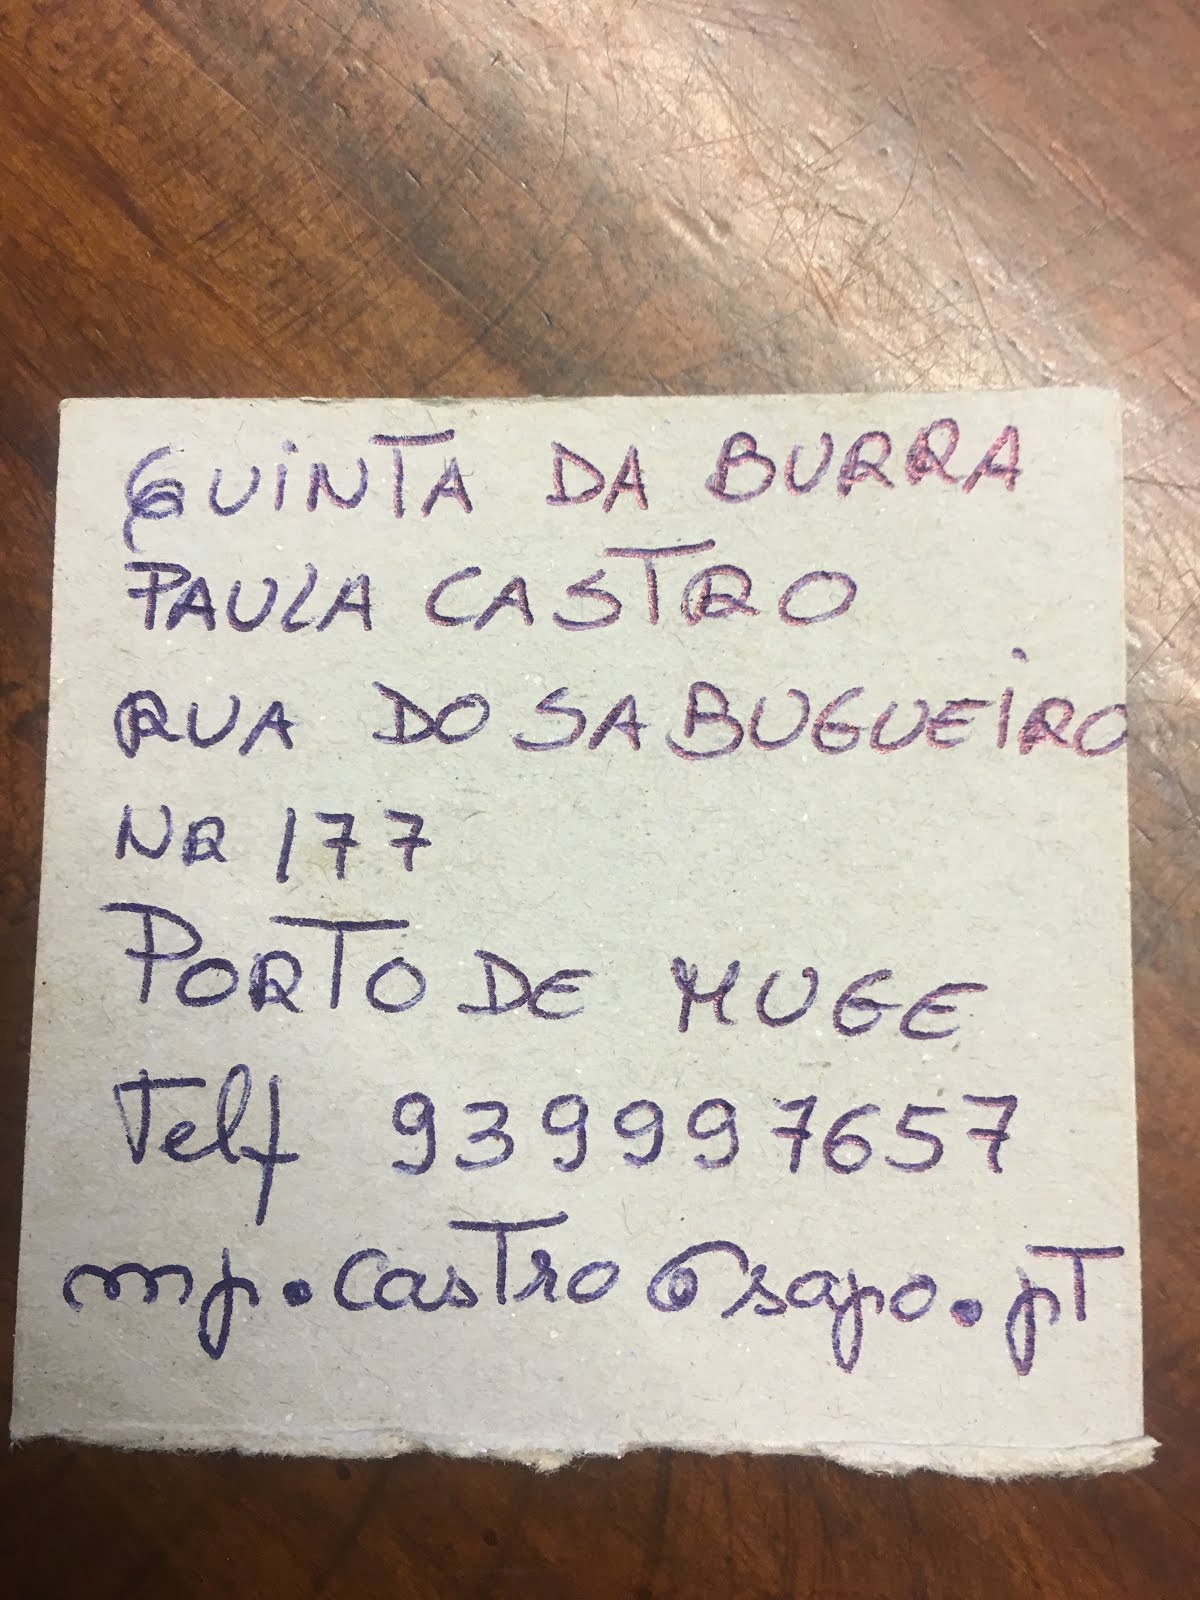 QUINTA DA BURRA
PAULA CASTRO
RUA DO SABUGUEIRO
NR 177
PORTO DE MUGE
Telf 939997657
mp.castro@sapo.pt